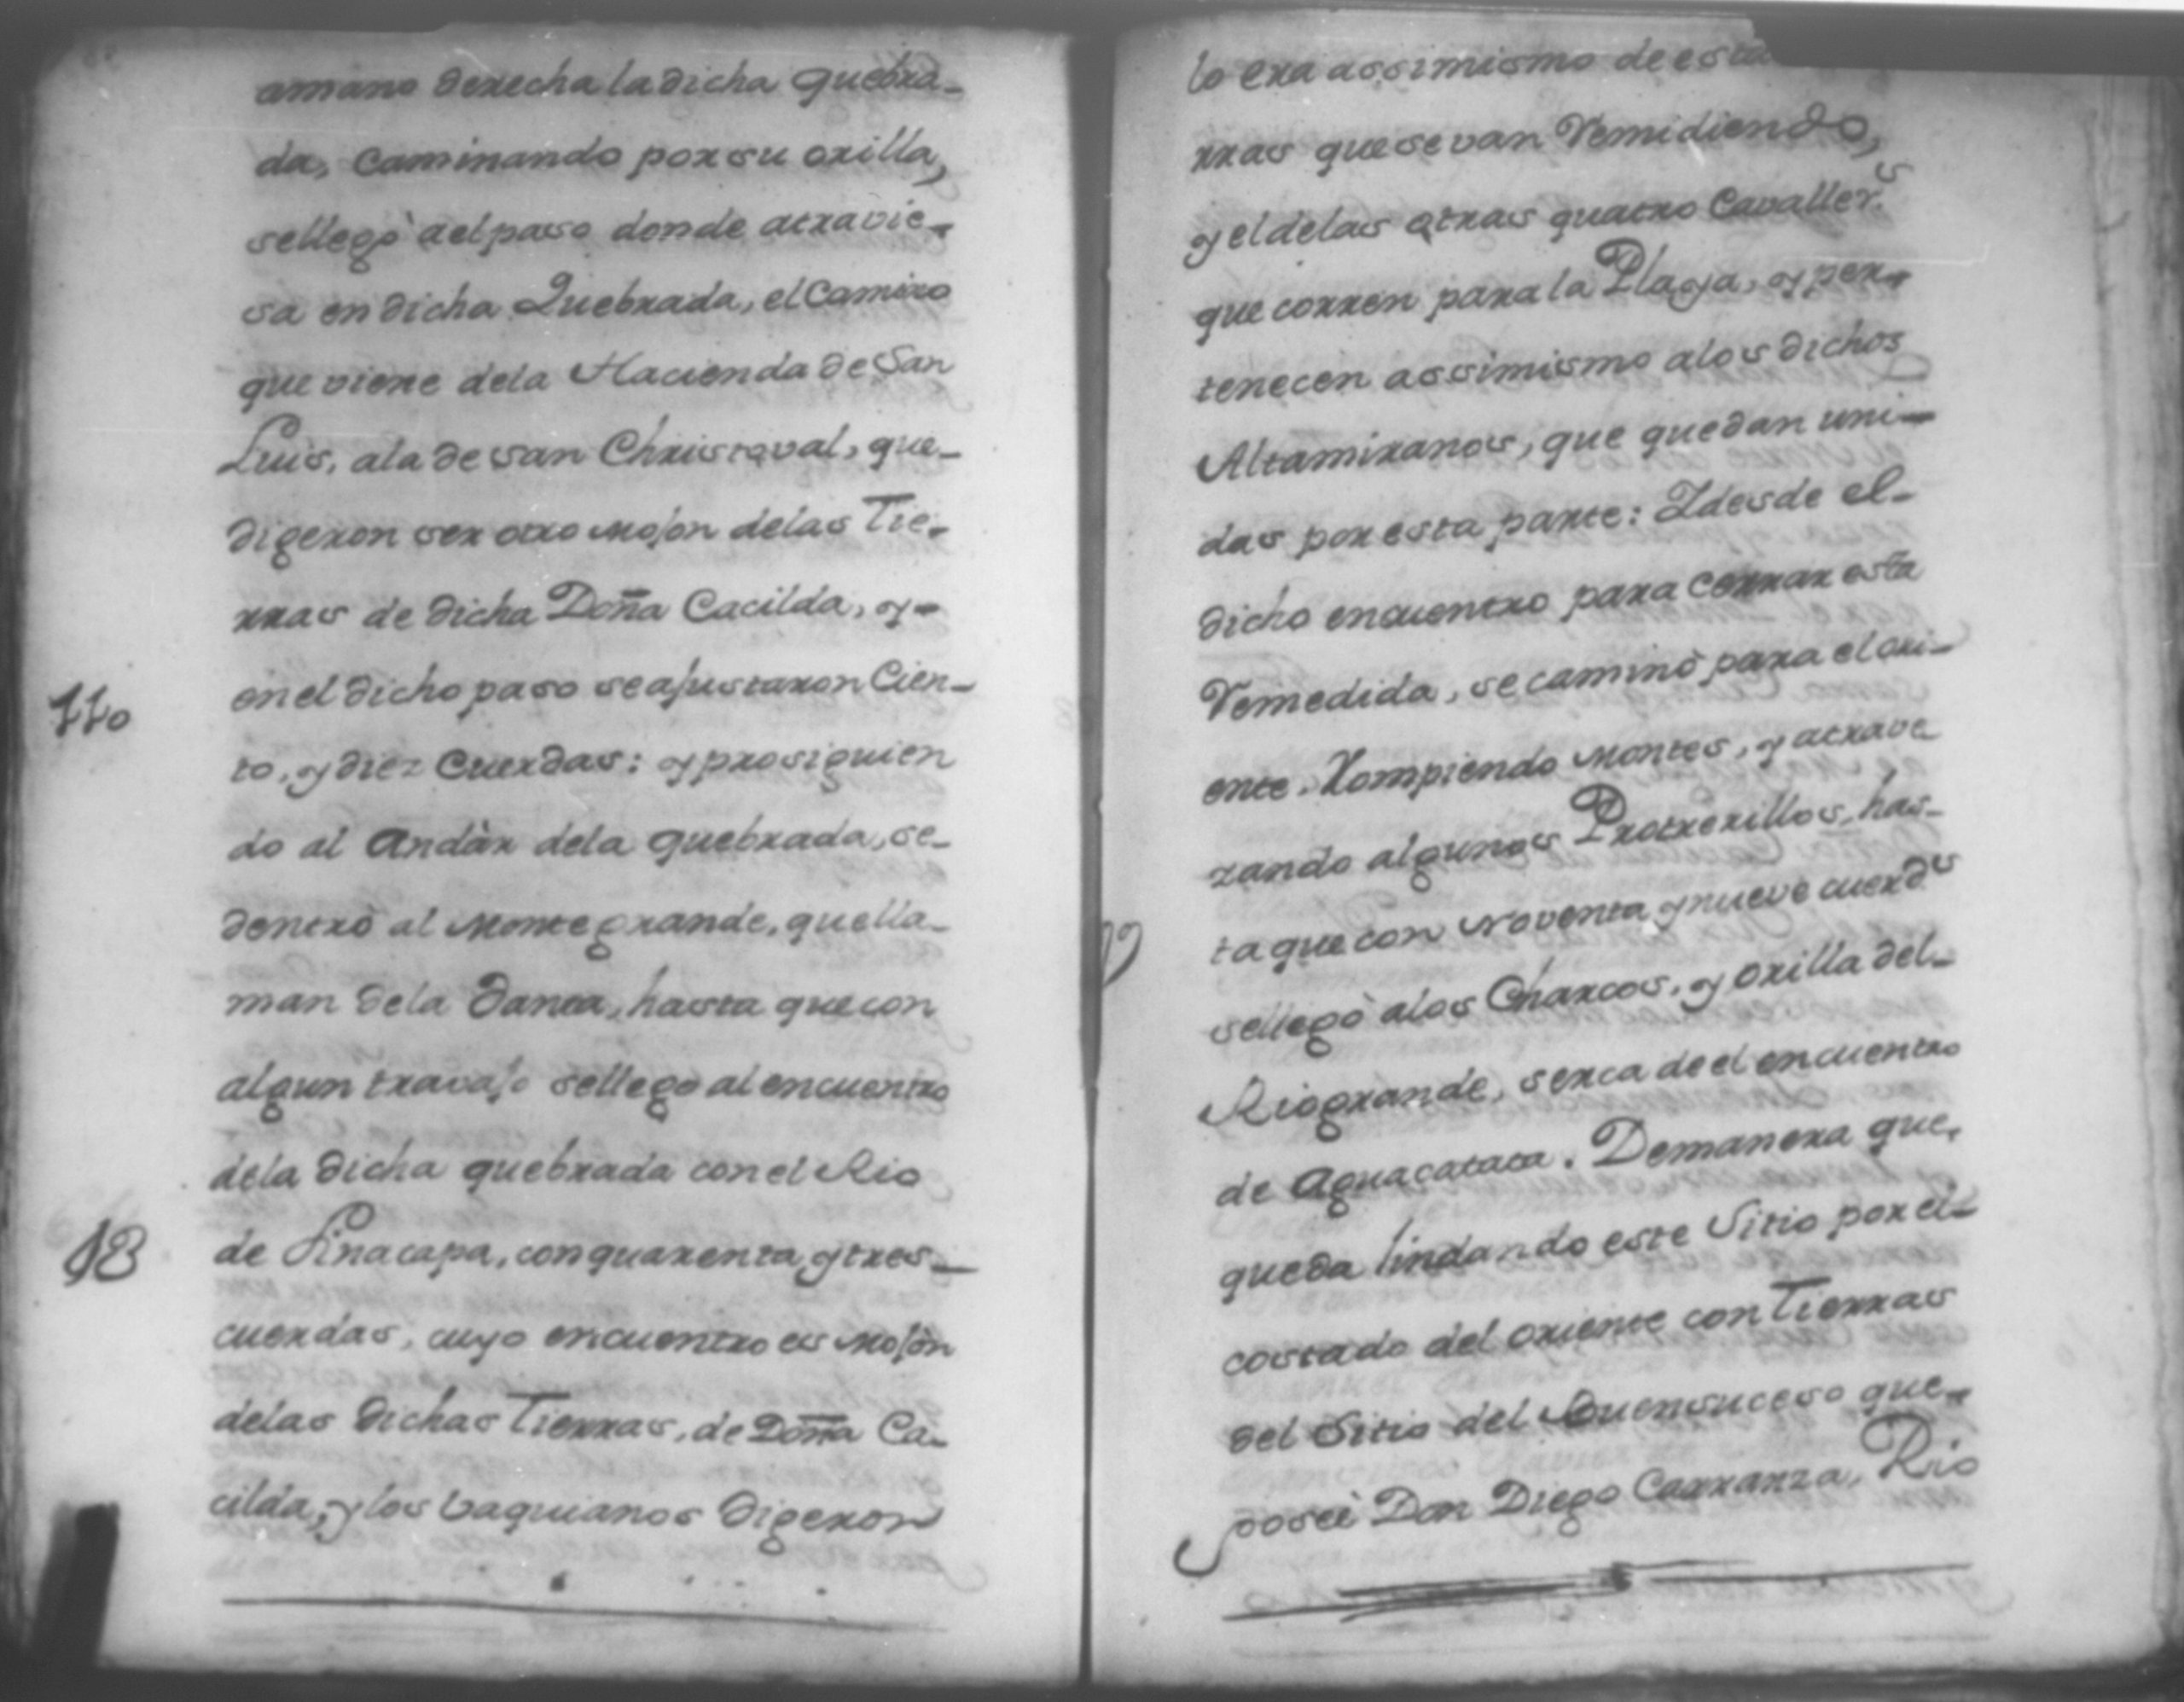 amano derecha la dicha quebra-
da, Caminando por su orilla,
sellegò ael paso donde atravie-
sa en dicha Quebrada, el Camino
que viene dela Hacienda de San
Luis, ala de san Christoval, que-
digeron ser otro Mojon delas Tie-
rras de dicha Doña Cacilda, y-
110
en el dicho paso se ajustaron Cien-
to, y diez Cuerdas: y prosiguien
do al Andàr dela quebrada, se-
dentrò al Monte grande, quella-
man dela Danta, hasta que con
algun travajo sellego al encuentro
dela dicha quebrada con el Rio
de Pinacapa, con quarenta, y tres-
cuerdas, cuyo encuentro es Mojòn
delas dichas Tierras, de Doña Ca-
cilda, y los baquianos digeron
lo era assimismo de
rras que se van Remidiendo,
y el delas otras quatro Cavaller.s
que corren para la Playa, y per-
tenecen assimismo alos dichos
Altamiranos, que quedan uni-
das por esta parte: Y desde el-
dicho encuentro para cerrar esta
Remedida, se caminò para el ori-
ente, Rompiendo Montes, y atrave
zando algunos Protrerillos, has-
ta que con Noventa, y nueve cuerd.s
sellegò alos Charcos, y orilla del-
Rio grande, serca de el encuentro
de Aguacatata. Demanera que,
queda lindando este Sitio por el-
costado del oriente con Tierras
del Sitio del Buensuceso que-
poseè Don Diego Carranza, Rio